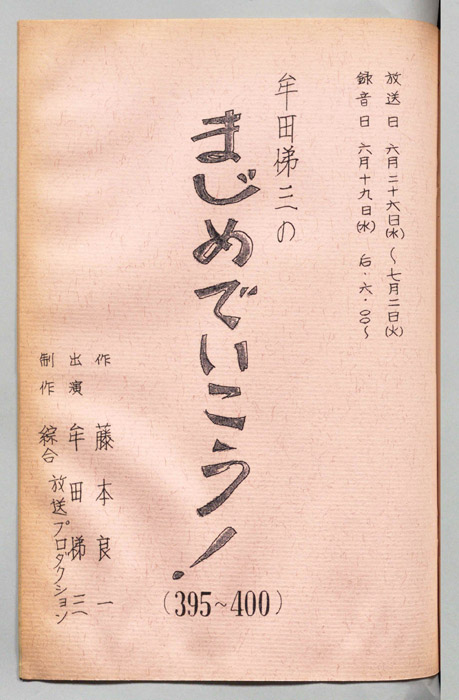 放送日 六月二十六日(水)～七月二日(火)
録音日 六月十九日(水) 后・六・〇〇～
牟田悌三の
まじめでいこう!
(395~400)
作 藤本良一
出演 牟田悌三
制作 綜合放送プロダクション